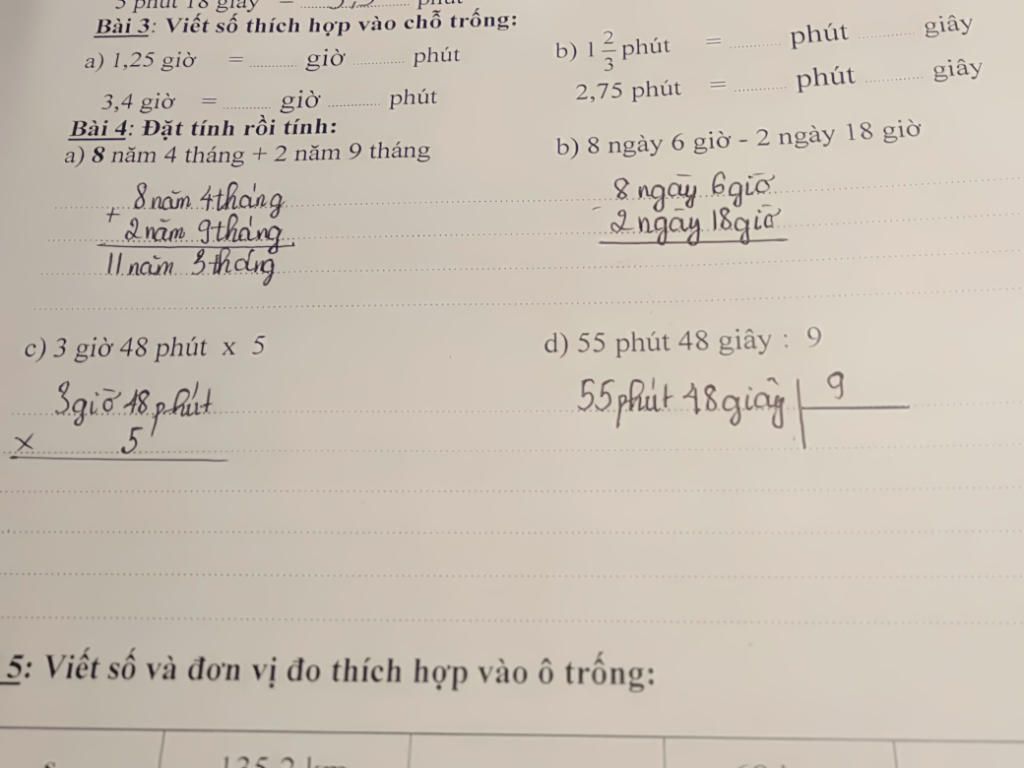 5 phút 18 giây = ............ phút
Bài 3: Viết số thích hợp vào chỗ trống:
a) 1,25 giờ = ............ giờ ............ phút
3,4 giờ = ............ giờ ............ phút
b) 1 2/3 phút = ............ phút ............ giây
2,75 phút = ............ phút ............ giây
Bài 4: Đặt tính rồi tính:
a) 8 năm 4 tháng + 2 năm 9 tháng
8 năm 4 tháng
+
2 năm 9 tháng
11 năm 3 tháng
b) 8 ngày 6 giờ - 2 ngày 18 giờ
8 ngày 6 giờ
-
2 ngày 18 giờ
c) 3 giờ 48 phút x 5
3 giờ 48 phút
x 5
d) 55 phút 48 giây : 9
55 phút 48 giây 9
5: Viết số và đơn vị đo thích hợp vào ô trống: